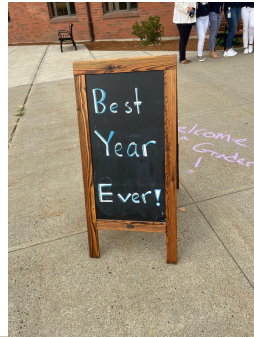 Best
Year
Ever!
elcome
Grader
!